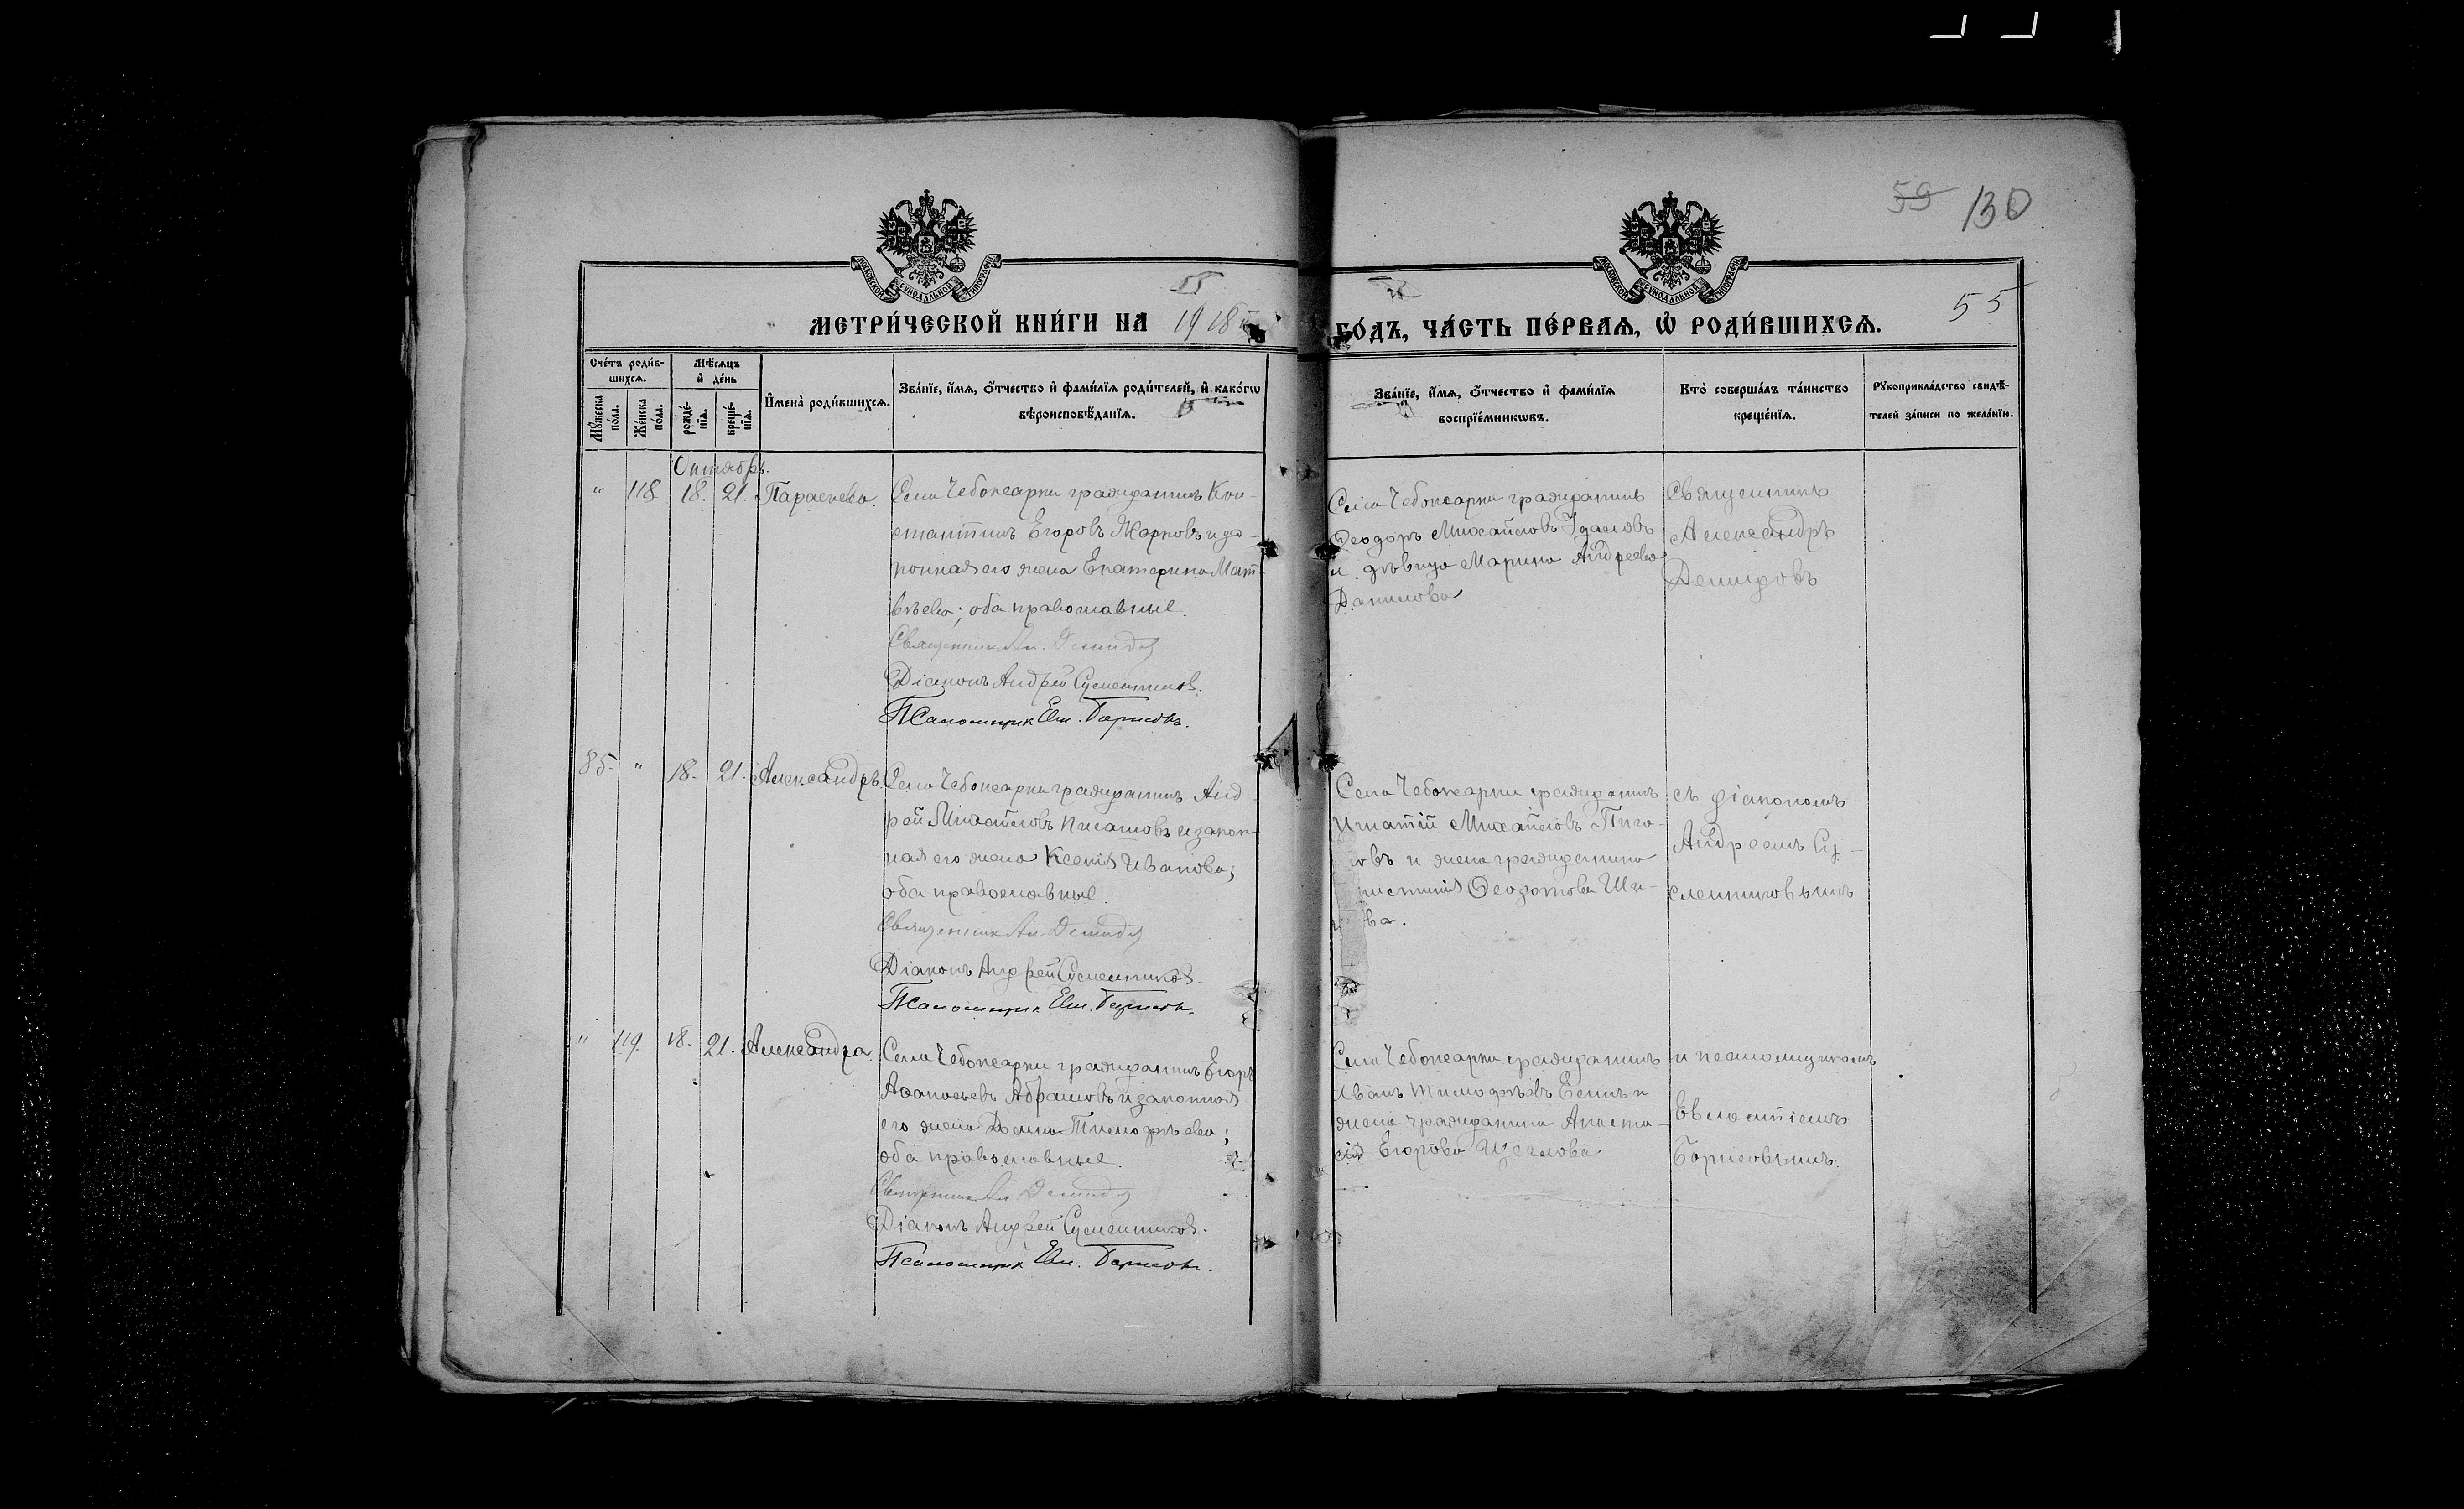 59 130
МОСКОВСКОЙ СѴНОДАЛЬНОЙ ТИПОГРАФІИ
МОСКОВСКОЙ СѴНОДАЛЬНОЙ ТИПОГРАФІИ
55
МЕТРИ́ЧЕСКОЙ КНИ́ГИ НА 1918 й
ГО́ДЪ, ЧА́СТЬ ПЕ́РВАЯ, Ѡ РОДИ́ВШИХСѦ.
Сче́тъ роди́в-
шихсѧ.
Мꙋ́жеска по́ла.
Же́нска по́ла.
Мѣ́сѧцъ
и҆ де́нь
рожде́-
нїѧ.
креще́-
нїѧ.
И҆мена̀ роди́вшихсѧ.
Зва́нїе, и҆́мѧ, ѻ҆́тчество и҆ фами́лїѧ роди́телей, и҆ како́гѡ
вѣроисповѣ́данїѧ.
Зва́нїе, и҆́мѧ, ѻ҆́тчество и҆ фами́лїѧ
воспрїе́мникѡвъ.
Кто̀ соверша́лъ та́инство
креще́нїѧ.
Рꙋкоприкла́дство свидѣ́-
телей за́писи по жела́нїю.
Октябрь.
" 118 18. 21. Параскева.
Села Чебоксарки гражданинъ Кон-
стантинъ Егоровъ Жарковъ и за-
конная его жена Екатерина Мат-
вѣева; оба православные.
Священник Ал. Демидов
Діаконъ Андрей Сусленников.
Псаломщик Евл. Борисовъ.
Села Чебоксарки гражданинъ
Ѳеодоръ Михайловъ
и дѣвица Марина Андреева
Данилова
Священникъ
Александръ
Демидовъ
85. " 18. 21. Александръ.
Села Чебоксарки гражданинъ Анд-
рей Михайловъ и закон-
ная его жена Ксенія Иванова;
оба православные.
Священник Ал. Демидов
Діаконъ Андрей Сусленников.
Псаломщик Евл. Борисовъ.
Села Чебоксарки гражданинъ
Игнатій Михайловъ
и жена гражданина
Ѳедотова
ва.
съ діакономъ
Андреемъ Су-
сленниковымъ
" 119. 18. 21. Александра.
Села Чебоксарки гражданинъ Егоръ
Аѳанасьевъ Абрамовъ и законная
его жена Домна Тимоѳѣева;
оба православные.
Священник Ал. Демидов
Діаконъ Андрей Сусленников.
Псаломщик Евл. Борисовъ.
Села Чебоксарки гражданинъ
Иванъ Тимоѳѣевъ и
жена гражданина Анаста-
сія Егорова Щеглова
и псаломщикомъ
Евлампіемъ
Борисовымъ.